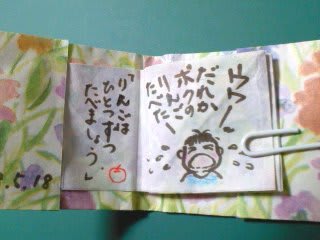 ウワー
だれか
ボクの
りんご
たべたー
「りんごは
ひとつずつ
たべましょう」
.5.18